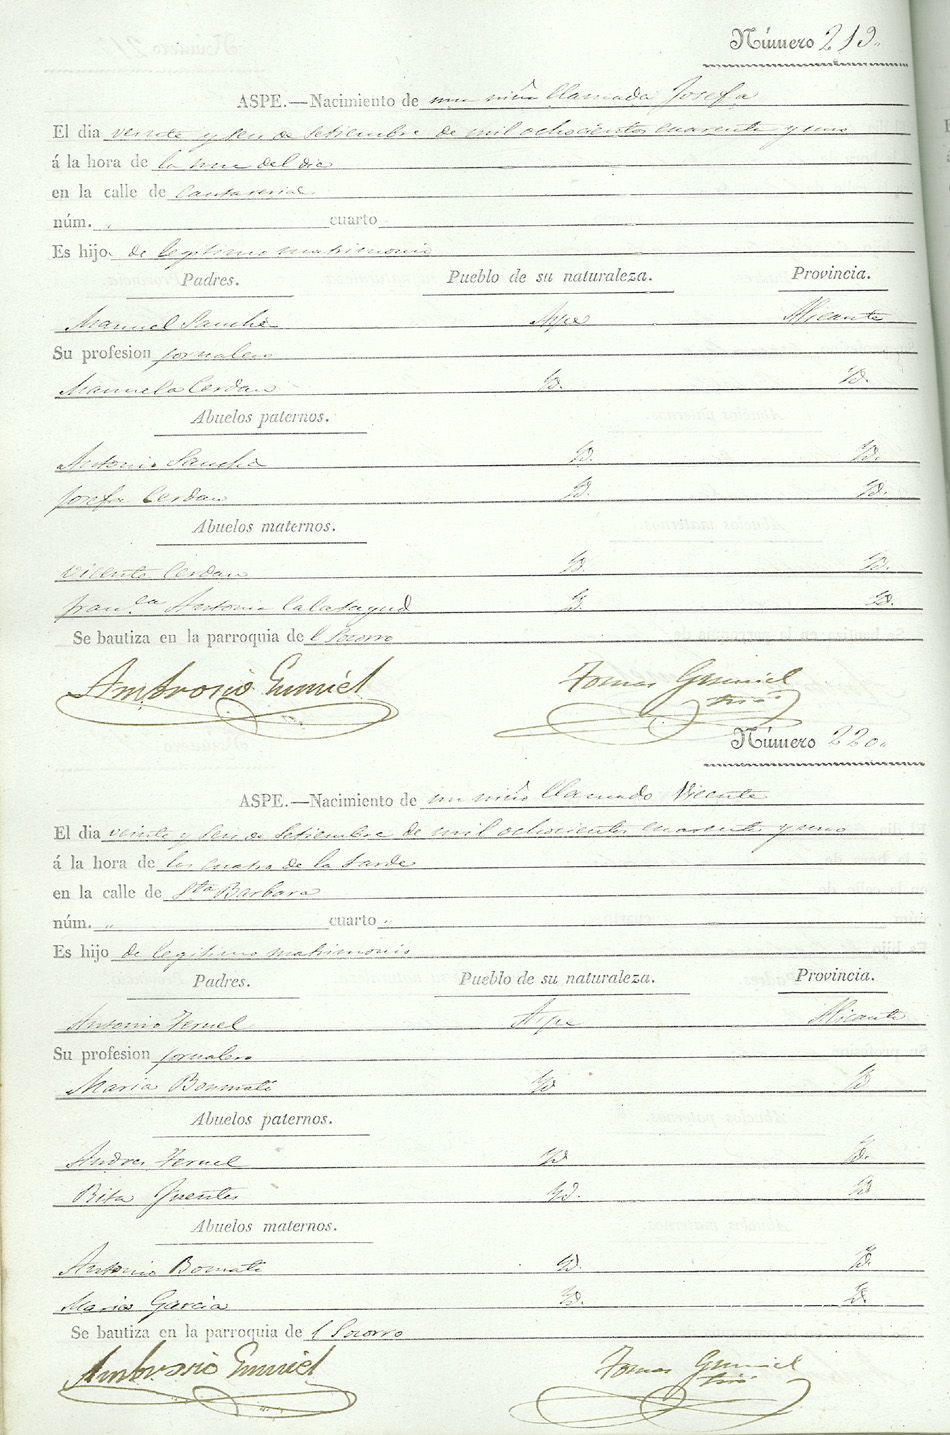 Número 219.
ASPE.—Nacimiento de una niña llamada Josefa
El dia veinte y seis de Setiembre de mil ochocientos cuarenta y uno
á la hora de la una del dia
en la calle de
núm. „ cuarto
Es hijo de legitimo matrimonio
Padres. Pueblo de su naturaleza. Provincia.
Manuel Sanchis Aspe Alicante
Su profesion jornalero
Manuela Cerdan Yd. Yd.
Abuelos paternos.
Antonio Sanchis Yd. Yd.
Josefa Cerdan Yd. Yd.
Abuelos maternos.
Vicente Cerdan Yd. Yd.
Fran.ca Antonia Calatayud Yd. Yd.
Se bautiza en la parroquia de l Socorro
Ambrosio Gumiel Tomas Gumiel
Número 220.
ASPE.—Nacimiento de un niño llamado Vicente
El dia veinte y seis de Setiembre de mil ochocientos cuarenta y uno
á la hora de las cuatro de la tarde
en la calle de Sta Barbara
núm. „ cuarto „
Es hijo de legitimo matrimonio
Padres. Pueblo de su naturaleza. Provincia.
Antonio Teruel Aspe Alicante
Su profesion jornalero
Maria Bonmati Yd Yd
Abuelos paternos.
Andres Teruel Yd Yd.
Rita Fuentes Yd. Yd
Abuelos maternos.
Antonio Bomati Yd. Yd.
Maria Garcia Yd. Yd.
Se bautiza en la parroquia de l Socorro
Ambrosio Gumiel Tomas Gumiel